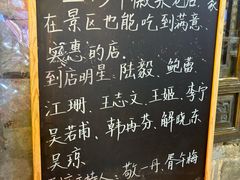 在景区也能吃到满意
实惠的店.
到店明星、陆毅、鲍蕾、
江珊、王志文、王姬、李宁
吴若甫、韩再芬、解晓东
吴琼
敬一丹、